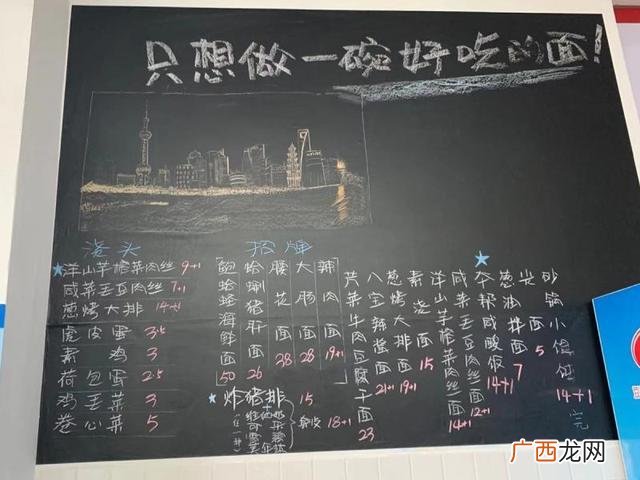 只想做一碗好吃的面!
浇头
★洋山芋榨菜肉丝 9+1
咸菜毛豆肉丝 7+1
葱烤大排 14+1
虎皮蛋 3.5
素鸡 3
荷包蛋 2.5
鸡毛菜 3
卷心菜 5
招牌
鲍蛤蜂海鲜面 50
蛤蜊猪肝面 26
腰花面 38
大肠面 28
辣肉面 19+1
★炸猪排 15
18+1
芹菜牛肉豆腐干面 23
八宝辣酱面 21+1
葱烤大排面 19+1
素浇面 15
洋山芋榨菜肉丝面 14+1
咸菜毛豆肉丝面 12+1
★本帮咸酸饭 14+1
葱油拌面 7
光面 5
砂锅小馄饨 14+1
完
广西龙网